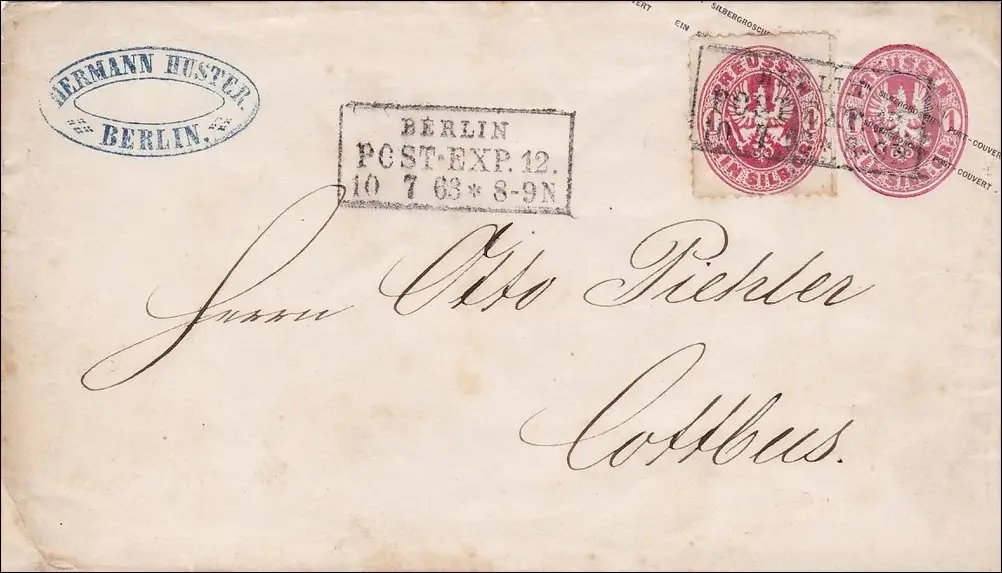 HERMANN HUSTER.
BERLIN.
BERLIN
POST-EXP. 12.
10 7 63 * 8-9N
EIN SILBERGROSCH
POST-COUVERT -
PREUSSEN
1 1
EIN SILB. GR.
PREUSSEN
1 1
EIN SILB. GR.
Herrn Otto Pichler
Cottbus.